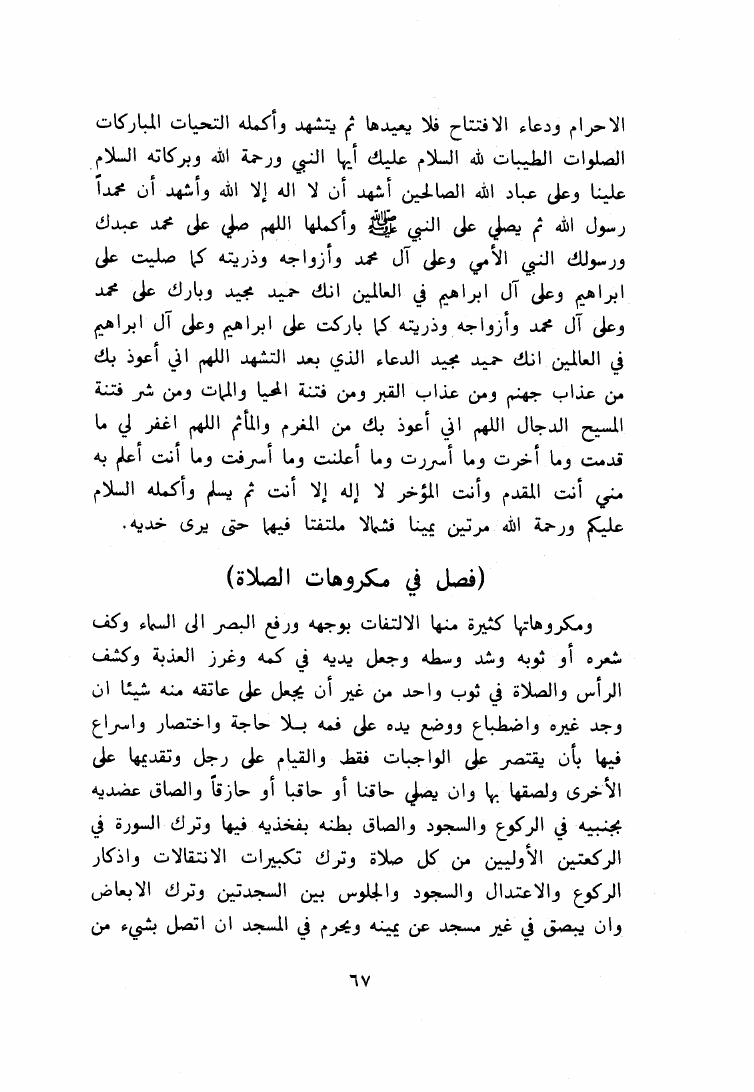 الاحرام ودعاء الافتتاح فلا يعيدها ثم يتشهد وأكمله التحيات المباركات
الصلوات الطيبات لله السلام عليك أيها النبي ورحمة الله وبركاته السلام
علينا وعلى عباد الله الصالحين أشهد أن لا اله إلا الله وأشهد أن محمداً
رسول الله ثم يصلي على النبي ﷺ وأكملها اللهم صلي على محمد عبدك
ورسولك النبي الأمي وعلى آل محمد وأزواجه وذريته كما صليت على
ابراهيم وعلى آل ابراهيم في العالمين انك حميد مجيد وبارك على محمد
وعلى آل محمد وأزواجه وذريته كما باركت على ابراهيم وعلى آل ابراهيم
في العالمين انك حميد مجيد الدعاء الذي بعد التشهد اللهم اني أعوذ بك
من عذاب جهنم ومن عذاب القبر ومن فتنة المحيا والمات ومن شر فتنة
المسيح الدجال اللهم اني أعوذ بك من المغرم والمأثم اللهم اغفر لي ما
قدمت وما أخرت وما أسررت وما أعلنت وما أسرفت وما أنت أعلم به
مني أنت المقدم وأنت المؤخر لا إله إلا أنت ثم يسلم وأكمله السلام
عليكم ورحمة الله مرتين يمينا فشمالا ملتفتا فيهما حتى يرى خديه.
(فصل في مكروهات الصلاة)
ومكروهاتها كثيرة منها الالتفات بوجهه ورفع البصر الى السماء وكف
شعره أو ثوبه وشد وسطه وجعل يديه في كمه وغرز العذبة وكشف
الرأس والصلاة في ثوب واحد من غير أن يجعل على عاتقه منه شيئا ان
وجد غيره واضطباع ووضع يده على فمه بلا حاجة واختصار واسراع
فيها بأن يقتصر على الواجبات فقط والقيام على رجل وتقديمها على
الأخرى ولصقها بها وان يصلي حاقنا أو حاقبا أو حازقاً والصاق عضديه
بجنبيه في الركوع والسجود والصاق بطنه بفخذيه فيها وترك السورة في
الركعتين الأوليين من كل صلاة وترك تكبيرات الانتقالات واذكار
الركوع والاعتدال والسجود والجلوس بين السجدتين وترك الابعاض
وان يبصق في غير مسجد عن يمينه ويحرم في المسجد ان اتصل بشيء من
٦٧